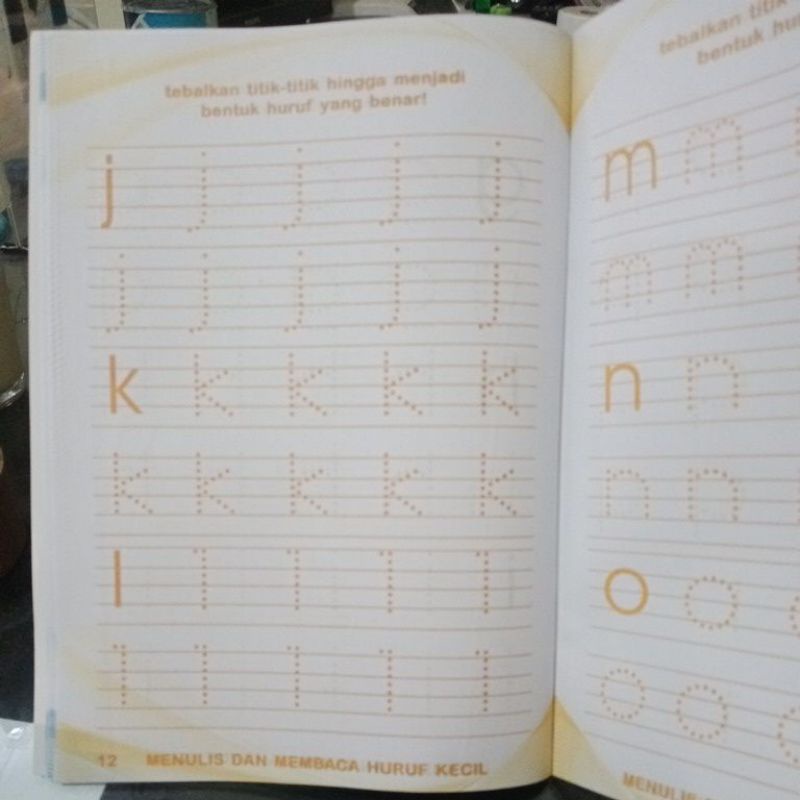 tebalkan titik-titik hingga menjadi
bentuk huruf yang benar!
j j j j j
j j j j j
k k k k k
k k k k k
l l l l l
l l l l l
12 MENULIS DAN MEMBACA HURUF KECIL
tebalkan titik
bentuk
m m
m m
n n
n n
o o
o o